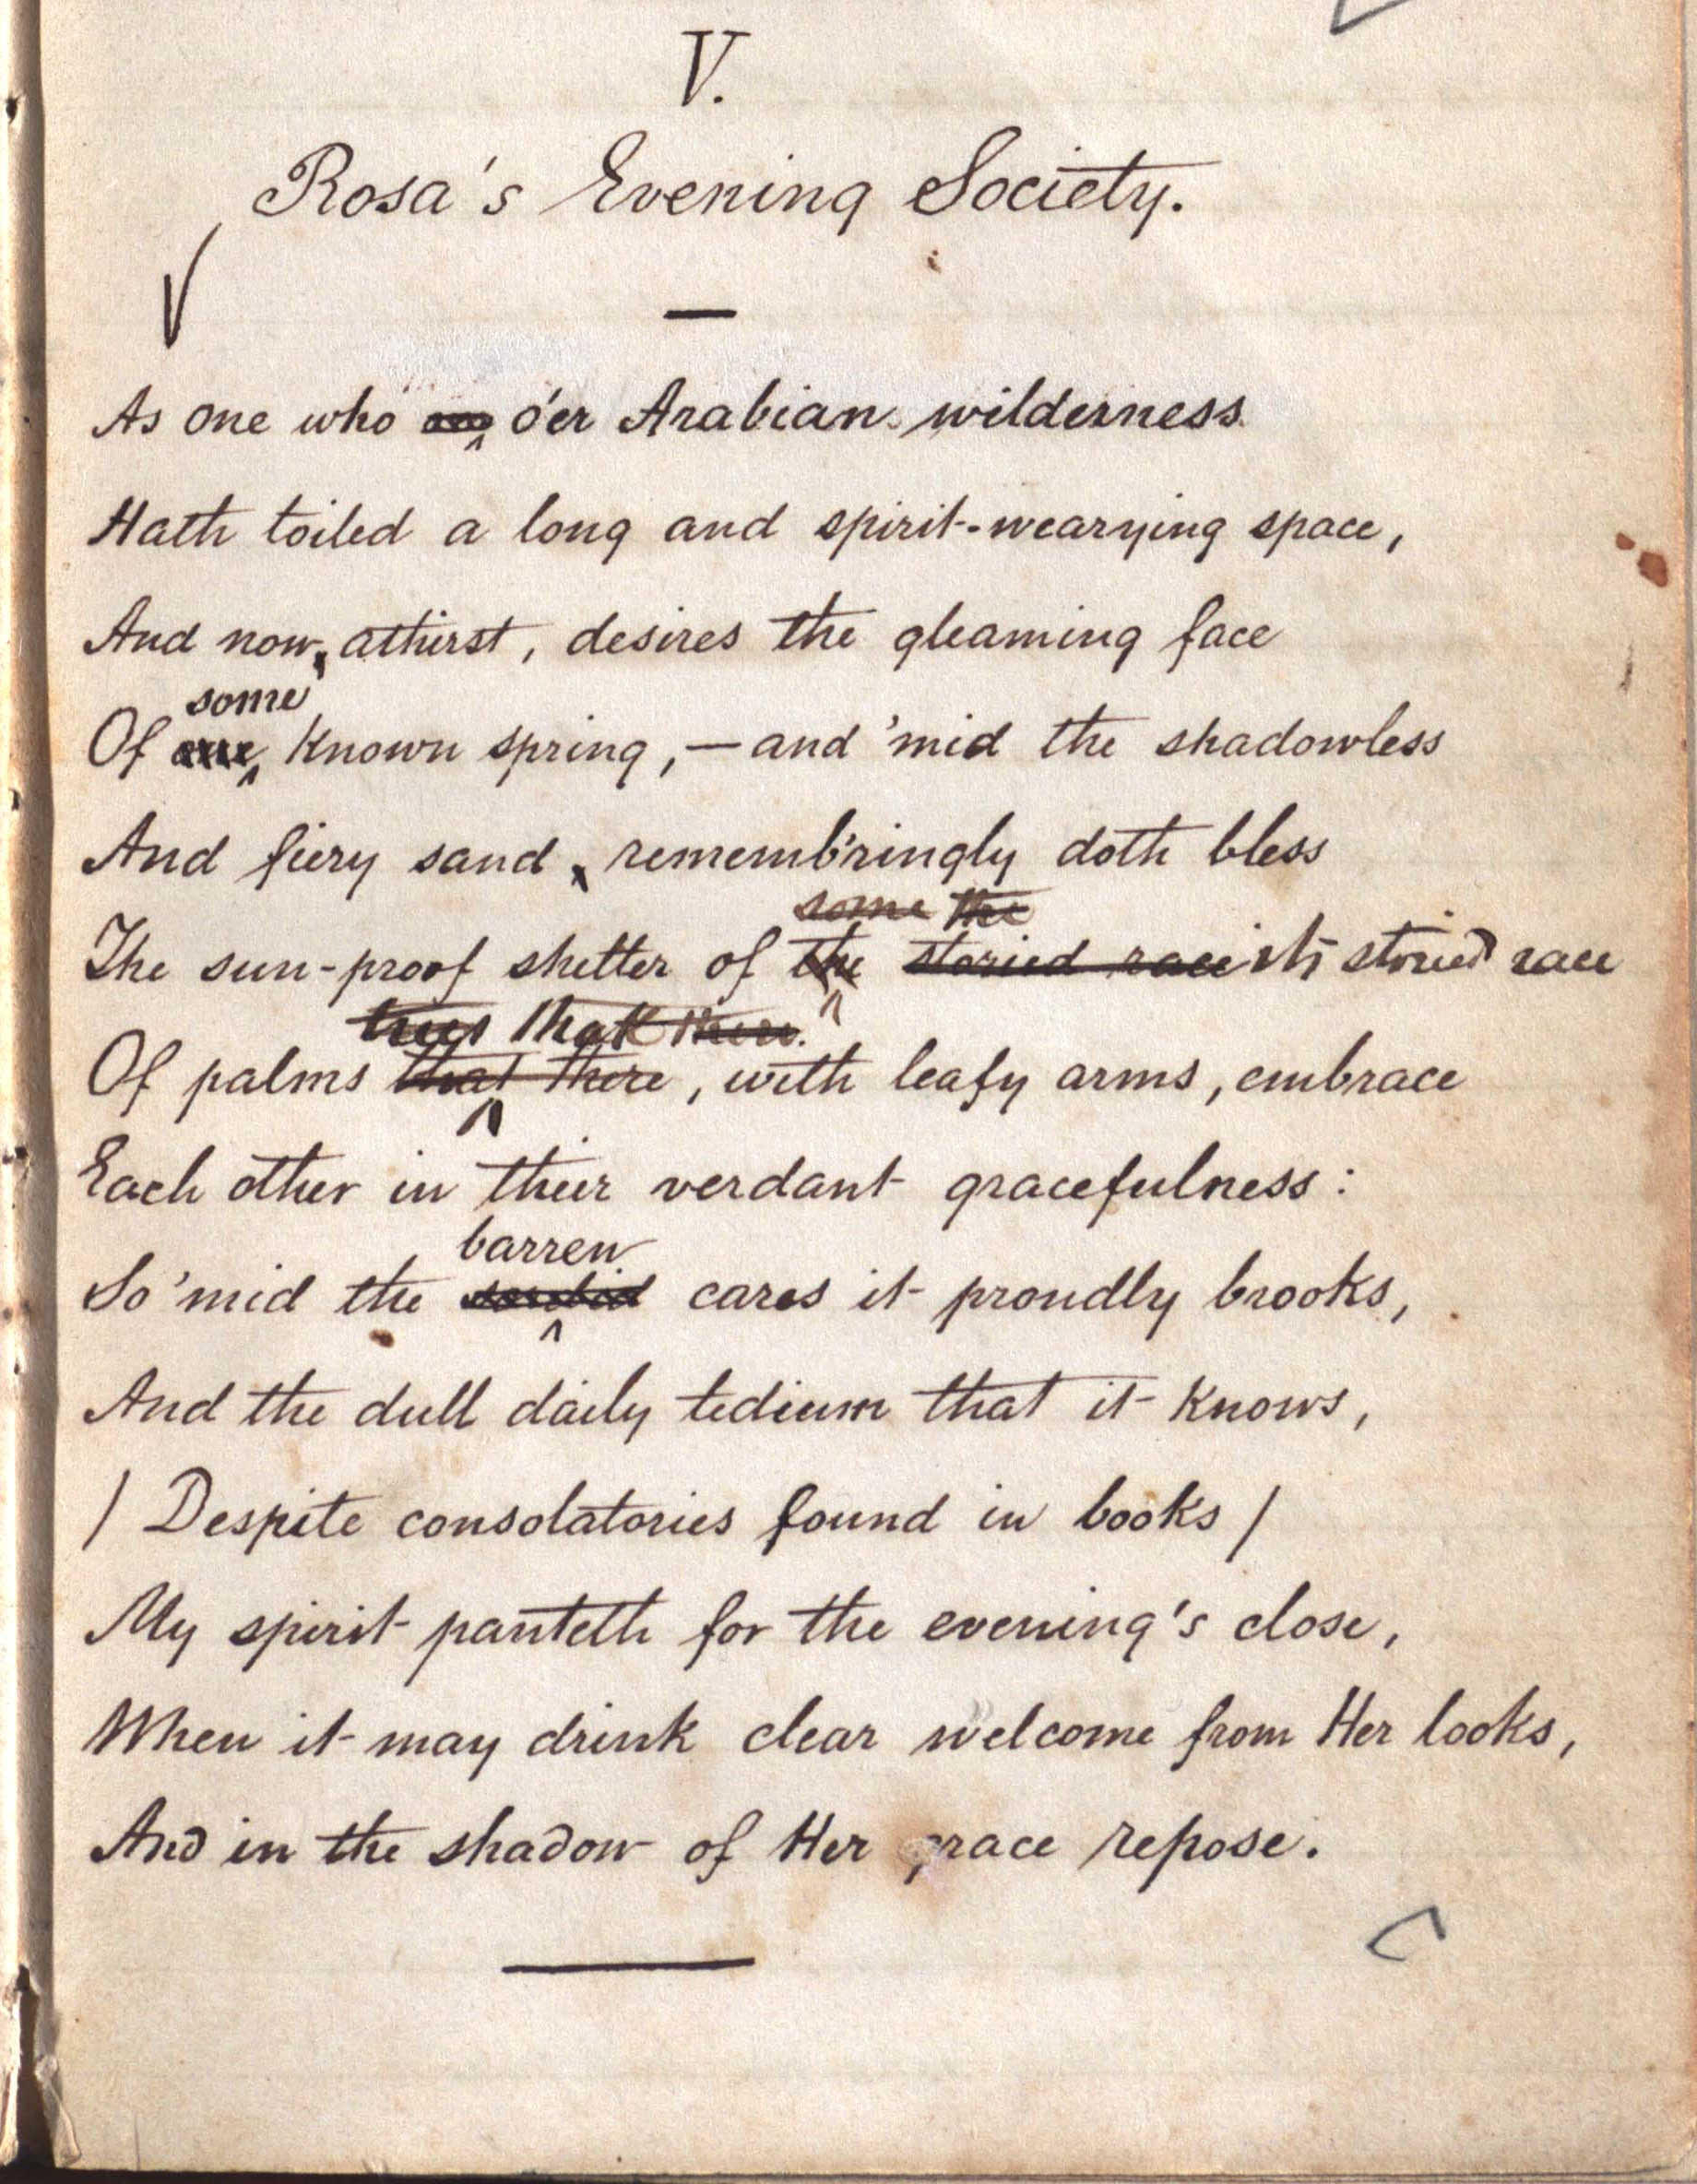 V.
Rosa's Evening Society.
As one who o'er Arabian wilderness
Hath toiled a long and spirit-wearying space,
And now, athirst, desires the gleaming face
some
Of one known spring,—and 'mid the shadowless
And fiery sand, rememb'ringly doth bless
some the
The sun-proof shelter of the storied race its storied race
trees that there
Of palms that there, with leafy arms, embrace
Each other in their verdant gracefulness:
barren
So 'mid the sordid cares it proudly brooks,
And the dull daily tedium that it knows,
/ Despite consolatories found in books /
My spirit panteth for the evening's close,
When it may drink clear welcome from Her looks,
And in the shadow of Her grace repose.